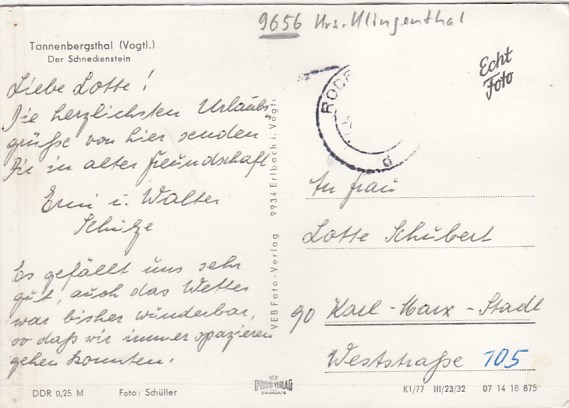 9656 Krs. Klingenthal
Tannenbergsthal (Vogtl.)
Der Schneckenstein
Echt
Foto
Liebe Lotte!
Die herzlichsten Urlaubs-
grüße von hier senden
Dir in alter Freundschaft
Erni u. Walter
Schütze
Es gefällt uns sehr
gut, auch das Wetter
war bisher wunderbar,
so daß wir immer spazieren
gehen konnten.
VEB Foto-Verlag 9934 Erlbach i. Vogtl.
RODE
An Frau
Lotte Schubert
90 Karl-Marx-Stadt
Weststraße 105
DDR 0,25 M Foto: Schüller
VERLAG
K1/77 III/23/32 07 14 18 675